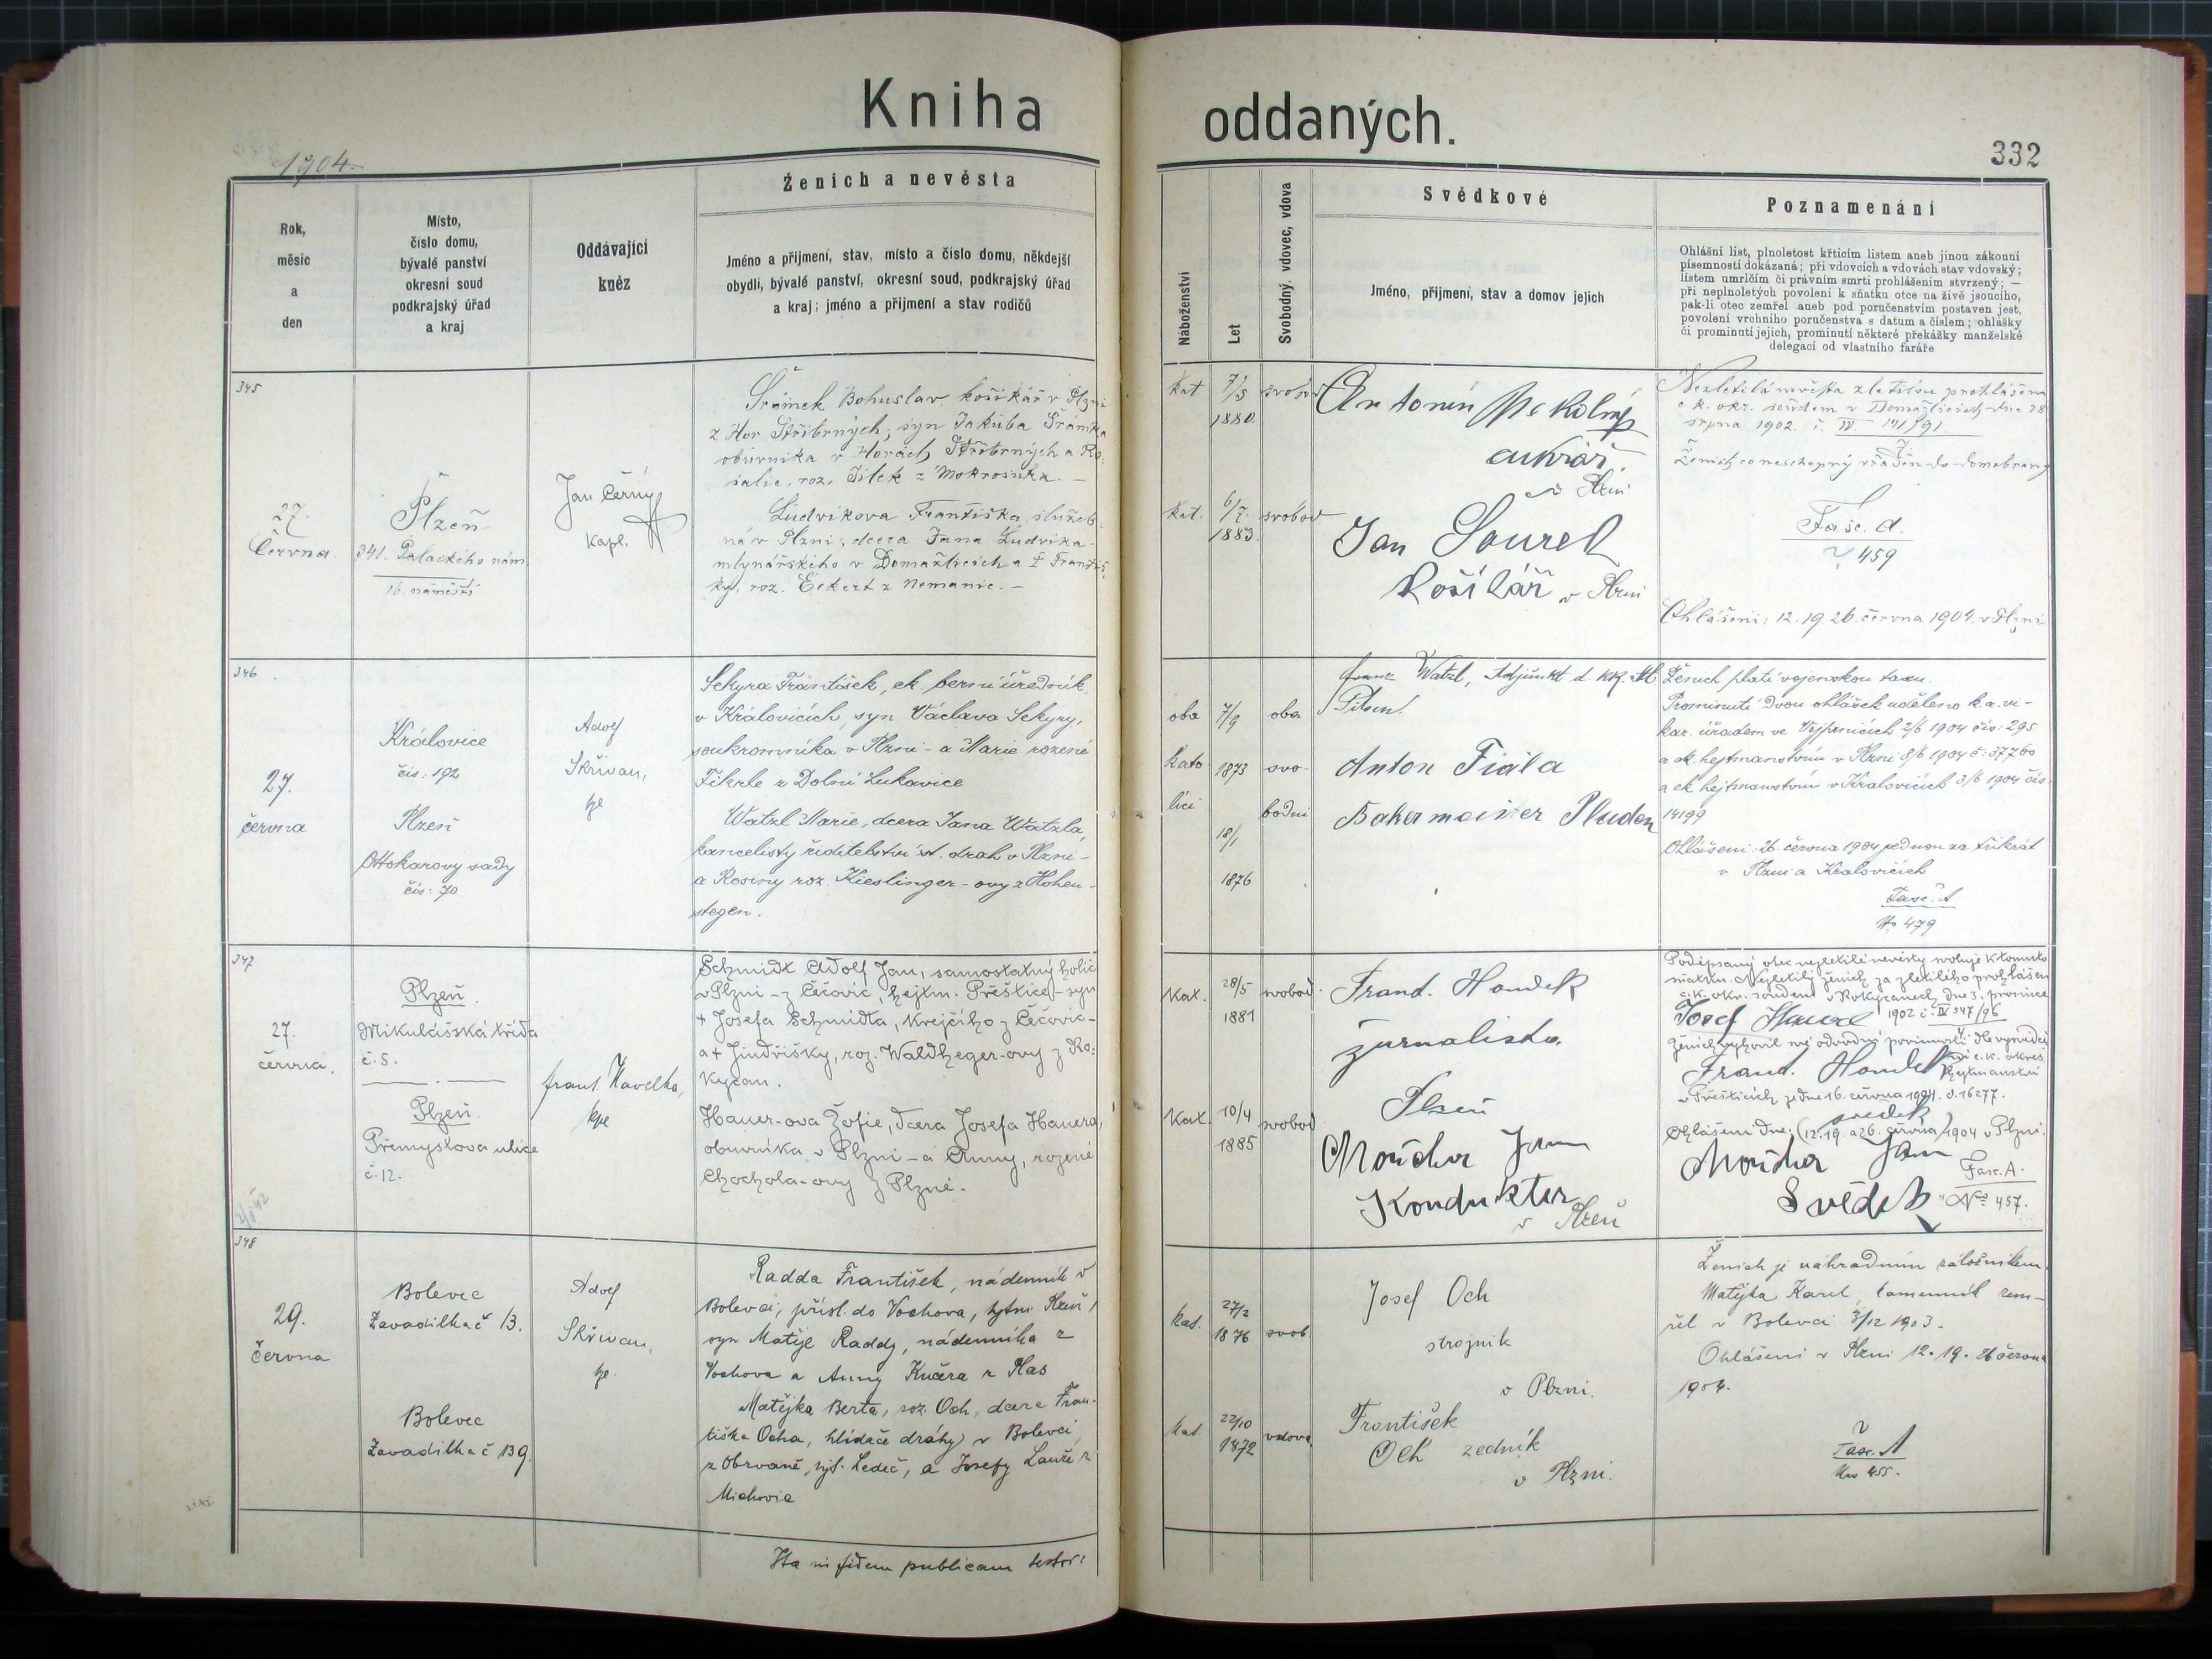 Kniha oddaných.
1904.
332
Rok,
měsíc
a
den
Místo,
číslo domu,
bývalé panství
okresní soud
podkrajský úřad
a kraj
Oddávající
kněz
Ženich a nevěsta
Jméno a přijmení, stav, místo a číslo domu, někdejší
obydlí, bývalé panství, okresní soud, podkrajský úřad
a kraj; jméno a přijmení a stav rodičů
Náboženství
Let
Svobodný, vdovec, vdova
Svědkové
Jméno, přijmení, stav a domov jejich
Poznamenání
Ohlášní list, plnoletost křticím listem aneb jinou zákonní
písemností dokázaná; při vdovcích a vdovách stav vdovský;
listem umrlčím či právním smrti prohlášením stvrzený; —
při neplnoletých povolení k sňatku otce na živě jsoucího,
pak-li otec zemřel aneb pod poručenstvím postaven jest,
povolení vrchního poručenstva s datum a číslem; ohlášky
či prominutí jejich, prominutí některé překážky manželské
delegací od vlastního faráře
345
27.
Června.
Plzeň
341. Palackého nám.
16. náměstí
Jan Černý
kapl.
Šrámek Bohuslav, košíkář v Plzni
z Hor Stříbrných, syn Jakuba Šrámka
obuvníka v Horách Stříbrných a Ro-
salie, roz. Jílek z Mokrosuka. —
Ludvíkova Františka, služeb-
ná v Plzni, dcera Jana Ludvíka
mlynářského v Domažlicích a † Františ-
ky, roz. Eckert z Nemanic. —
Kat
7/5
1880
svobod
Kat.
1883.
svobod
Antonín
cukrář.
v Plzni
Jan Šourek
Košíkář v Plzni
Nezletilá nevěsta zletilou prohlášena
c. k. okr. soudem v Domažlicích dne 28
srpna 1902. č.
Ženich co neschopný vřaděn do domobrany
Fasc. A.
459
Ohlášeni: 12. 19. 26. června 1904. v Plzni
346
27.
června
Královice
čís: 192
Plzeň
Ottokarovy sady
čís: 70
Adolf
Skřivan,
Sekyra František, ck. berní úředník
v Královicích, syn Václava Sekyry,
soukromníka v Plzni - a Marie rozené
Fikrle z Dolní Lukavice
Watzl Marie, dcera Jana Watzla,
kancelisty ředitelství st. drah v Plzni -
a Rosiny roz. Kieslinger-ovy z Hohen-
stegen.
oba
kato
líci
7/9
1873
18/1
1876
oba
svo-
bodni
Franz Watzl, Adjunkt d. kk.
Pilsen
Anton Fiala
Bakermeister Pludon
Ženich platí vojenskou taxu.
Prominutí dvou ohlášek uděleno k. a. vi-
kar. úřadem ve 2/6 1904 čís. 295
a ck. hejtmanstvím v Plzni 8/6 1904 č: 37760
a ck hejtmanstvím v Královicích 3/6 1904 čís.
14199
Ohlášeni: 26. června 1904 jednou za třikrát
v Plzni a Královicích
Fasc. A
No 479
347
27.
června.
Plzeň.
Mikulášská třída
č. 5.
Plzeň.
Přemyslova ulice
č. 12.
frant. Havelka,
kpe
Schmidt Adolf Jan, samostatný holič
v Plzni - z Čečovic, hejtm. Přeštice - syn
+ Josefa Schmidta, krejčího z Čečovic -
a + Jindřišky, roz. Waldheger-ovy z Ro-
kycan.
Hauer-ova Žofie, dcera Josefa Hauera,
obuvníka v Plzni - a Anny, rozené
Chochola-ovy z Plzně.
Kat.
28/5
1881
svobod.
Kat.
10/4
1885
svobod
Frant. Houdek
žurnalista.
Plzeň
Moučka Jan
Kondukter
v Plzni
Podepsaný otec nezletilé nevěsty svoluje k tomuto
sňatku. Nezletilý ženich za zletilého prohlášen
c. k. okr. soudem v Rokycanech dne 3. prosince
Josef Hauer 1902 č. IV 547/96
Ženich vyhověl své odvodní povinnosti
Frant. Houdek c. k. okres.
hejtmanství
v Přešticích ze dne 16. června 1904. č. 16277.
svědek
Ohlášeni dne: (12. 19. a 26. června) 1904 v Plzni.
Moučka Jan
Fasc. A.
Svědek
No 457.
348
29.
června
Bolevec
Zavadilka č 13.
Bolevec
Zavadilka č 139
Adolf
Skřivan,
Radda František, nádenník v
Bolevci, přísl. do Vochova, hjtm. Plzeň,
syn Matěje Raddy, nádenníka z
Vochova a Anny Kučera z Plas
Matějka Berta, roz. Och, dcera Fran-
tiška Ocha, hlídače dráhy v Bolevci,
z Obrvaně, Ledeč, a Josefy Lauře z
Michovic
kat.
27/2
1876
svob.
kat.
22/10
1872
vdova
Josef Och
strojník
v Plzni.
František
Och zedník
v Plzni.
Ženich je náhradním záložníkem.
Matějka Karel, lamenník zem-
řel v Bolevci 3/12 1903.
Ohlášeni v Plzni 12. 19. 26 června
1904.
Fasc. A
Nro 455.
Ita in fidem publicam testor: